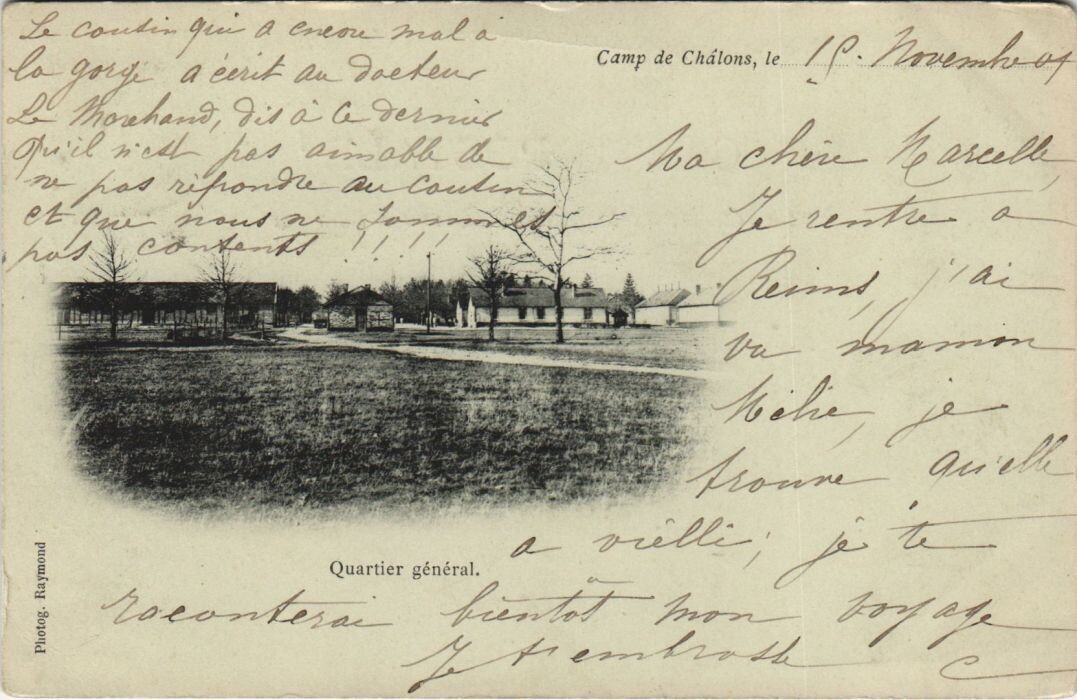 Le cousin qui a encore mal à
la gorge a écrit au docteur
Le Marchand, dis à ce dernier
Qu'il n'est pas aimable de
ne pas répondre au cousin
et que nous ne sommes
pas contents !!!!
Camp de Châlons, le 15 Novembre 01
Ma chère Marcelle,
Je rentre à
Reims, j'ai
vu maman
Mélie, je
trouve qu'elle
a vieilli; je te
Quartier général.
raconterai bientôt mon voyage
Je t'embrasse
Photog. Raymond